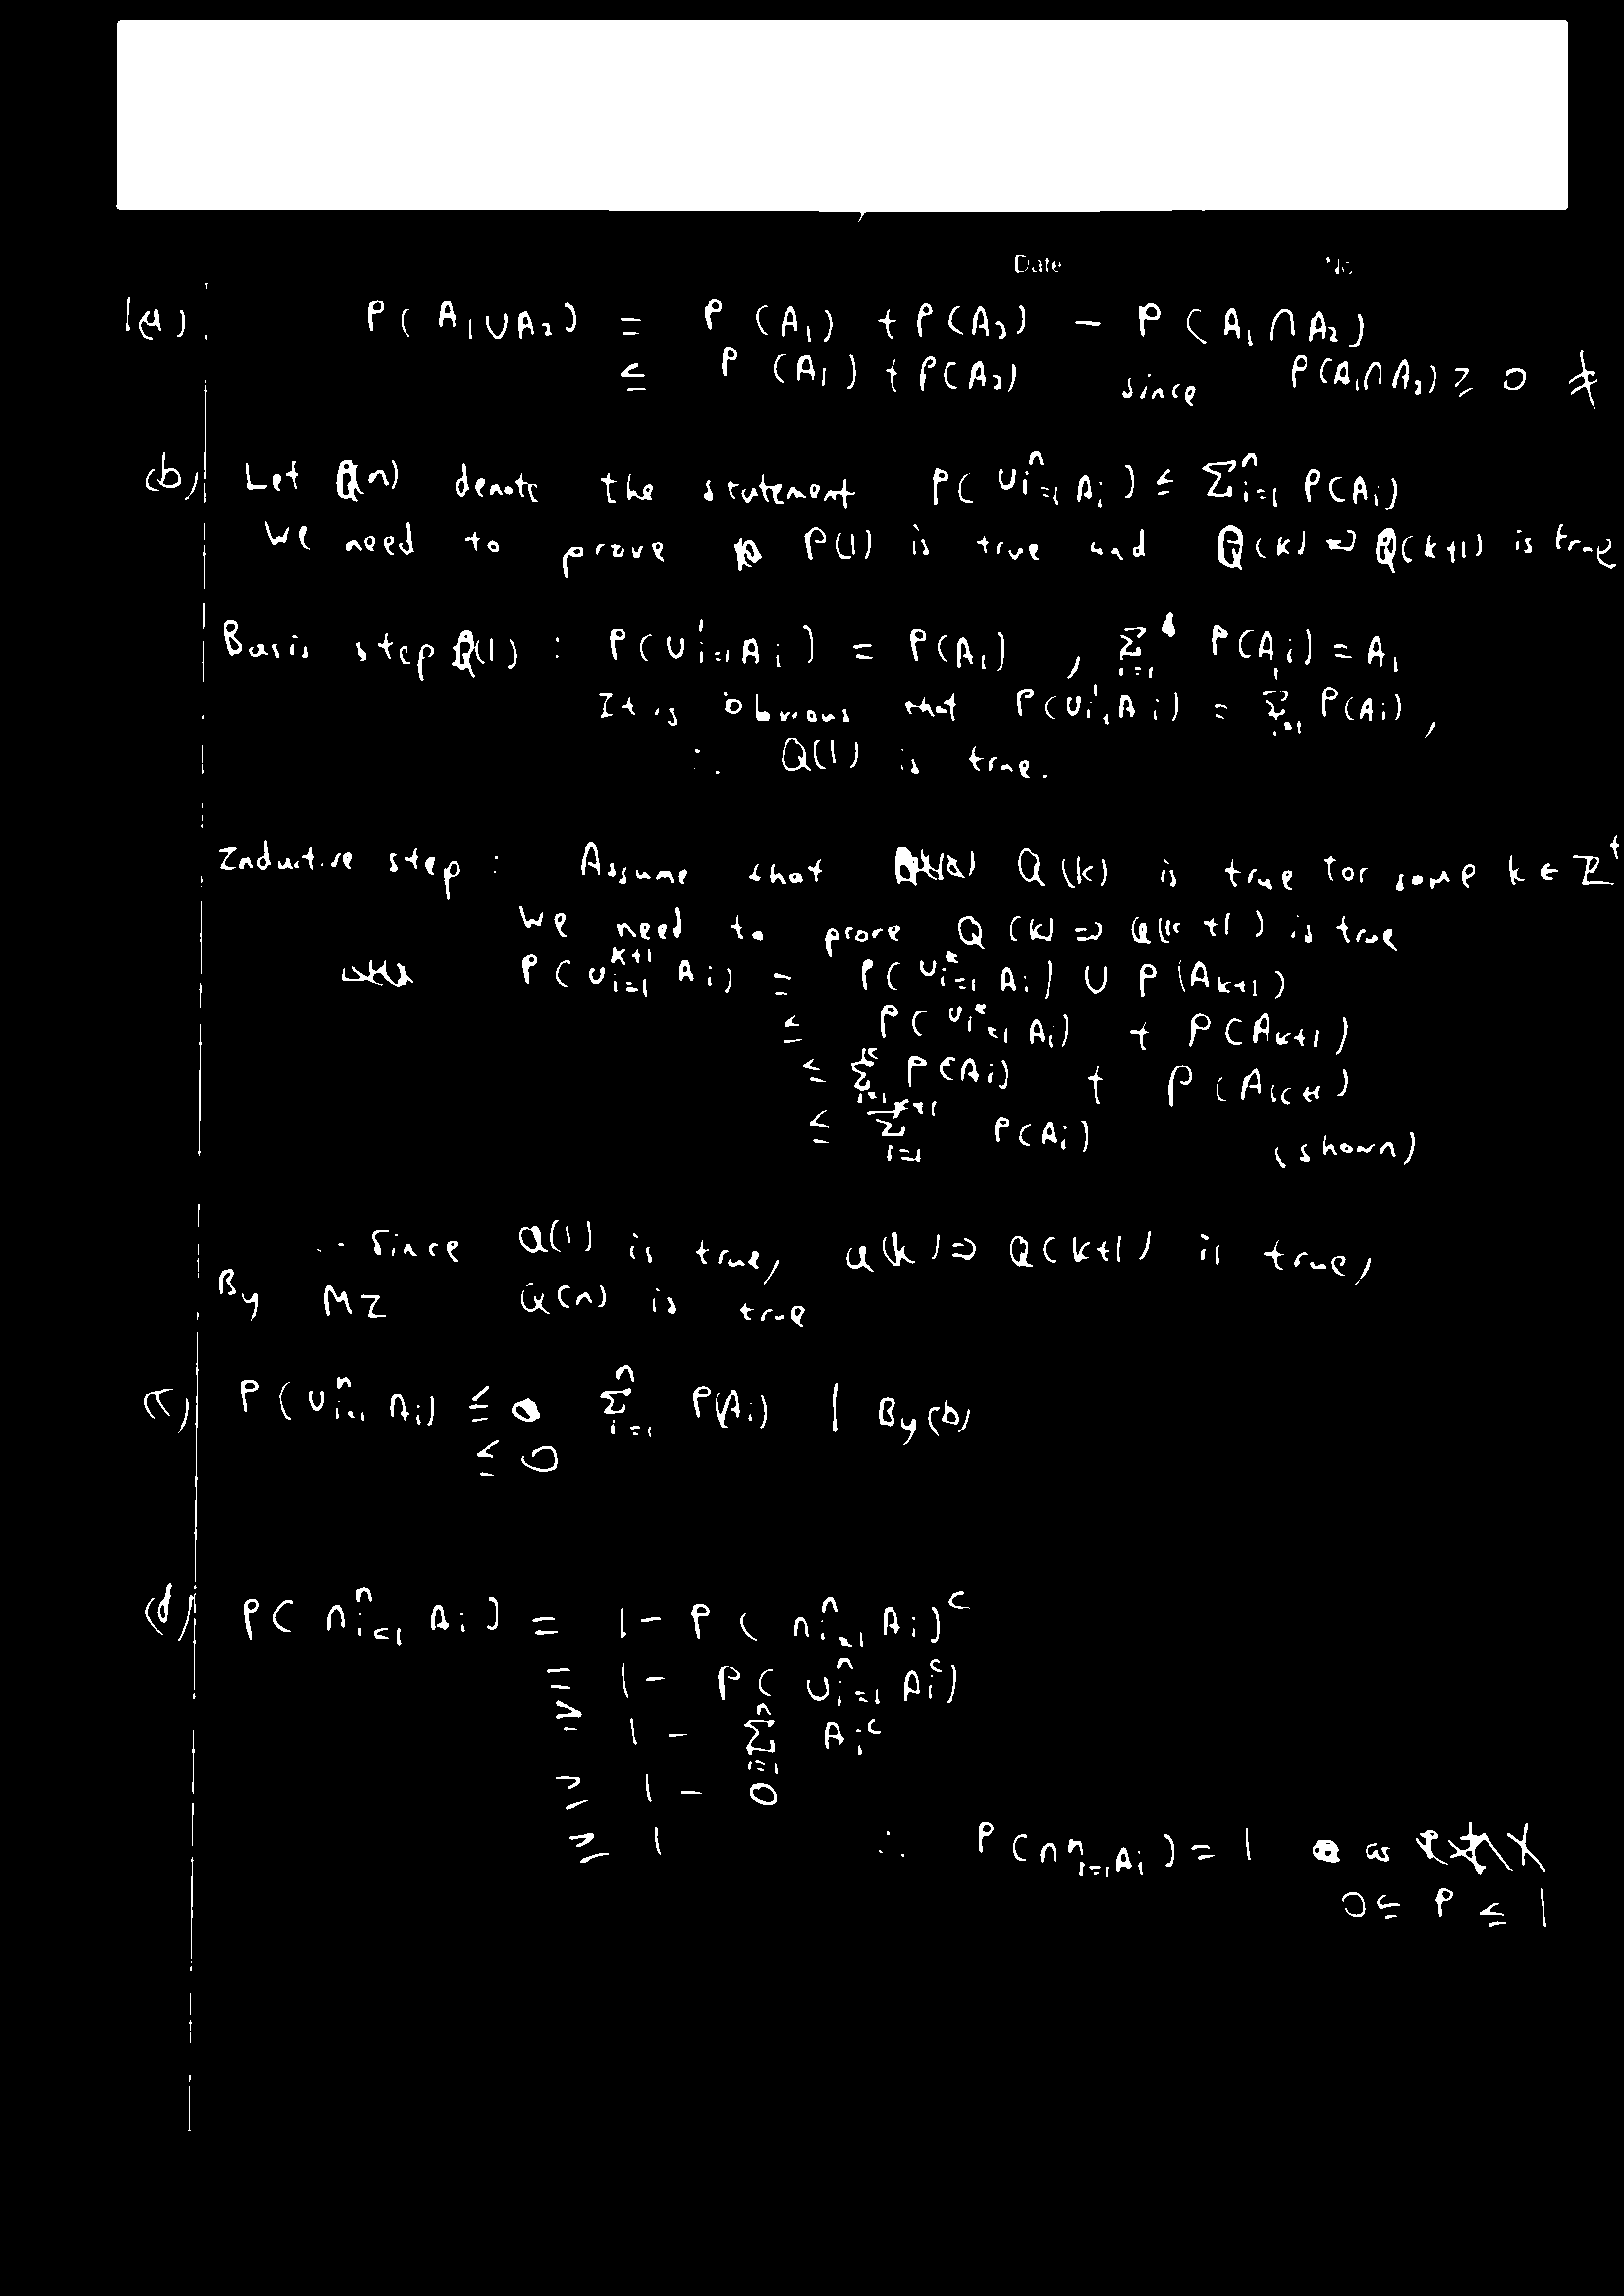 Date No
1(a). P( A₁∪A₂) = P (A₁) + P(A₂) - P (A₁ ∩ A₂)
≤ P (A₁) + P(A₂) since P(A₁∩A₂) ≥ 0
(b) Let Q(n) denote the statement P( ∪ᵢ₌₁ⁿ Aᵢ ) ≤ Σᵢ₌₁ⁿ P(Aᵢ)
We need to prove P(1) is true and Q(k) ⇒ Q(k+1) is true
Basis step Q(1) : P(∪ᵢ₌₁¹ Aᵢ) = P(A₁) , Σᵢ₌₁¹ P(Aᵢ) = A₁
It is obvious that P(∪ᵢ₌₁¹ Aᵢ) = Σᵢ₌₁¹ P(Aᵢ),
∴ Q(1) is true.
Inductive step : Assume that Q(k) is true for some k ∈ Z⁺
We need to prove Q(k) ⇒ Q(k+1) is true
P(∪ᵢ₌₁ᵏ⁺¹ Aᵢ) = P(∪ᵢ₌₁ᵏ Aᵢ) ∪ P(Aₖ₊₁)
≤ P(∪ᵢ₌₁ᵏ Aᵢ) + P(Aₖ₊₁)
≤ Σᵢ₌₁ᵏ P(Aᵢ) + P(Aₖ₊₁)
≤ Σᵢ₌₁ᵏ⁺¹ P(Aᵢ) (shown)
∴ Since Q(1) is true, Q(k) ⇒ Q(k+1) is true,
By MI Q(n) is true
(c) P(∪ᵢ₌₁ⁿ Aᵢ) ≤ Σᵢ₌₁ⁿ P(Aᵢ) | By (b)
≤ 0
(d) P( ∩ᵢ₌₁ⁿ Aᵢ) = 1 - P ( ∩ᵢ₌₁ⁿ Aᵢ)ᶜ
= 1 - P( ∪ᵢ₌₁ⁿ Aᵢᶜ)
≥ 1 - Σᵢ₌₁ⁿ Aᵢᶜ
≥ 1 - 0
≥ 1 ∴ P(∩ᵢ₌₁ⁿ Aᵢ) = 1 as
0 ≤ P ≤ 1